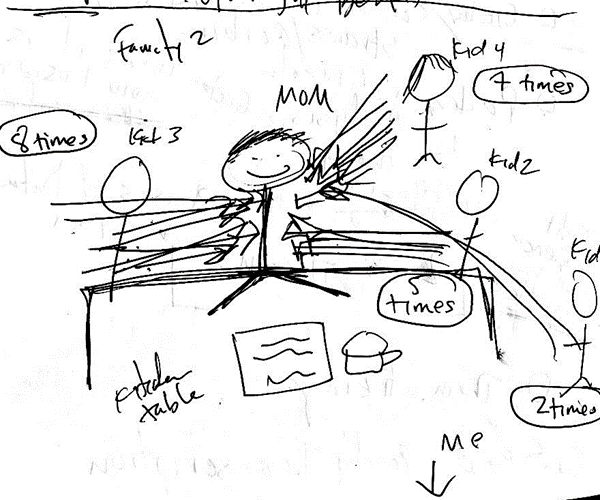 Family 2
Kid 4
7 times
MOM
8 times
Kid 3
Kid 2
Kid
5
times
Kitchen
table
2 times
Me